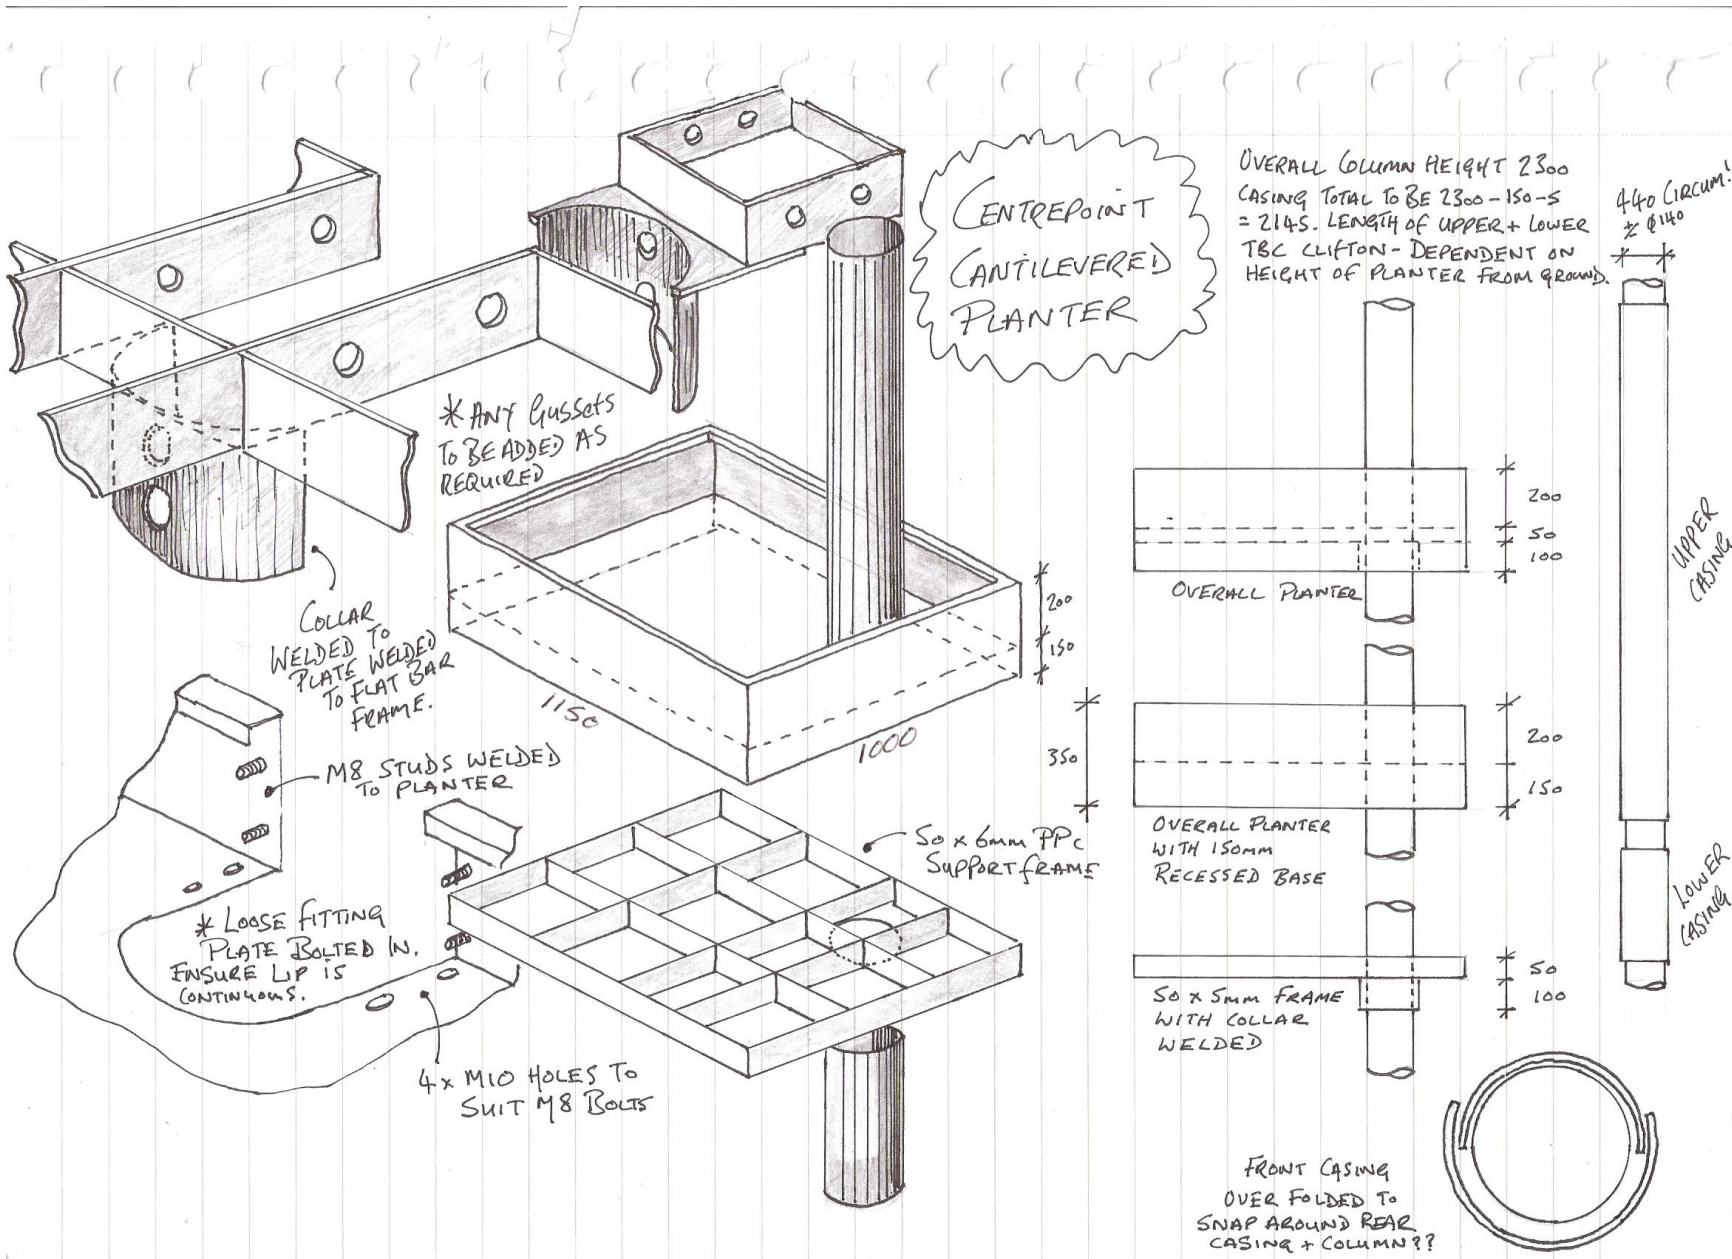 CENTREPOINT
CANTILEVERED
PLANTER
OVERALL COLUMN HEIGHT 2300
CASING TOTAL TO BE 2300-150-5
= 2145. LENGTH OF UPPER + LOWER
TBC CLIFTON - DEPENDENT ON
HEIGHT OF PLANTER FROM GROUND.
440 CIRCUM!
± Ø140
* ANY GUSSETS
TO BE ADDED AS
REQUIRED
COLLAR
WELDED TO
PLATE WELDED
TO FLAT BAR
FRAME.
200
150
1150
1000
M8 STUDS WELDED
TO PLANTER
* LOOSE FITTING
PLATE BOLTED IN.
ENSURE LIP IS
CONTINUOUS.
4 x M10 HOLES TO
SUIT M8 BOLTS
50 x 6mm PPC
SUPPORT FRAME
200
50
100
OVERALL PLANTER
350
200
150
OVERALL PLANTER
WITH 150MM
RECESSED BASE
50
100
50 x 5mm FRAME
WITH COLLAR
WELDED
UPPER
CASING
LOWER
CASING
FRONT CASING
OVER FOLDED TO
SNAP AROUND REAR
CASING + COLUMN??